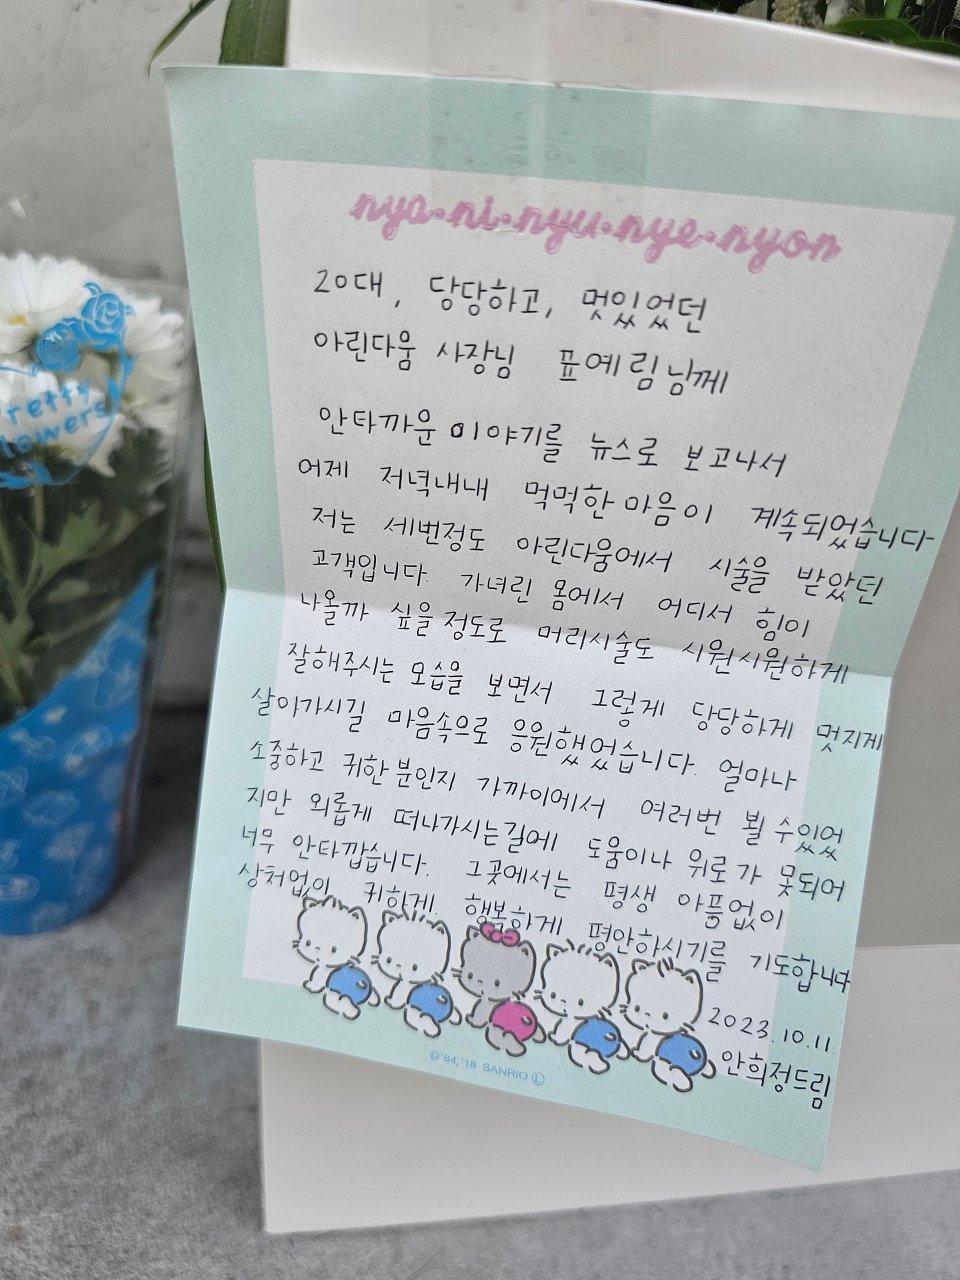 nya·ni·nyu·nye·nyon
20대, 당당하고, 멋있었던
아린다움 사장님 표예림님께
안타까운 이야기를 뉴스로 보고나서
어제 저녁내내 먹먹한 마음이 계속되었습니다
저는 세번정도 아린다움에서 시술을 받았던
고객입니다. 가녀린 몸에서 어디서 힘이
나올까 싶을정도로 머리시술도 시원시원하게
잘해주시는 모습을 보면서 그렇게 당당하게 멋지게
살아가시길 마음속으로 응원했었습니다. 얼마나
소중하고 귀한분인지 가까이에서 여러번 뵐 수있었
지만 외롭게 떠나가시는길에 도움이나 위로가 못되어
너무 안타깝습니다. 그곳에서는 평생 아픔없이
상처없이 귀하게 행복하게 평안하시기를 기도합니다
2023.10.11.
안희정드림
©'84,'18 SANRIO Ⓛ
Pretty
Flowers